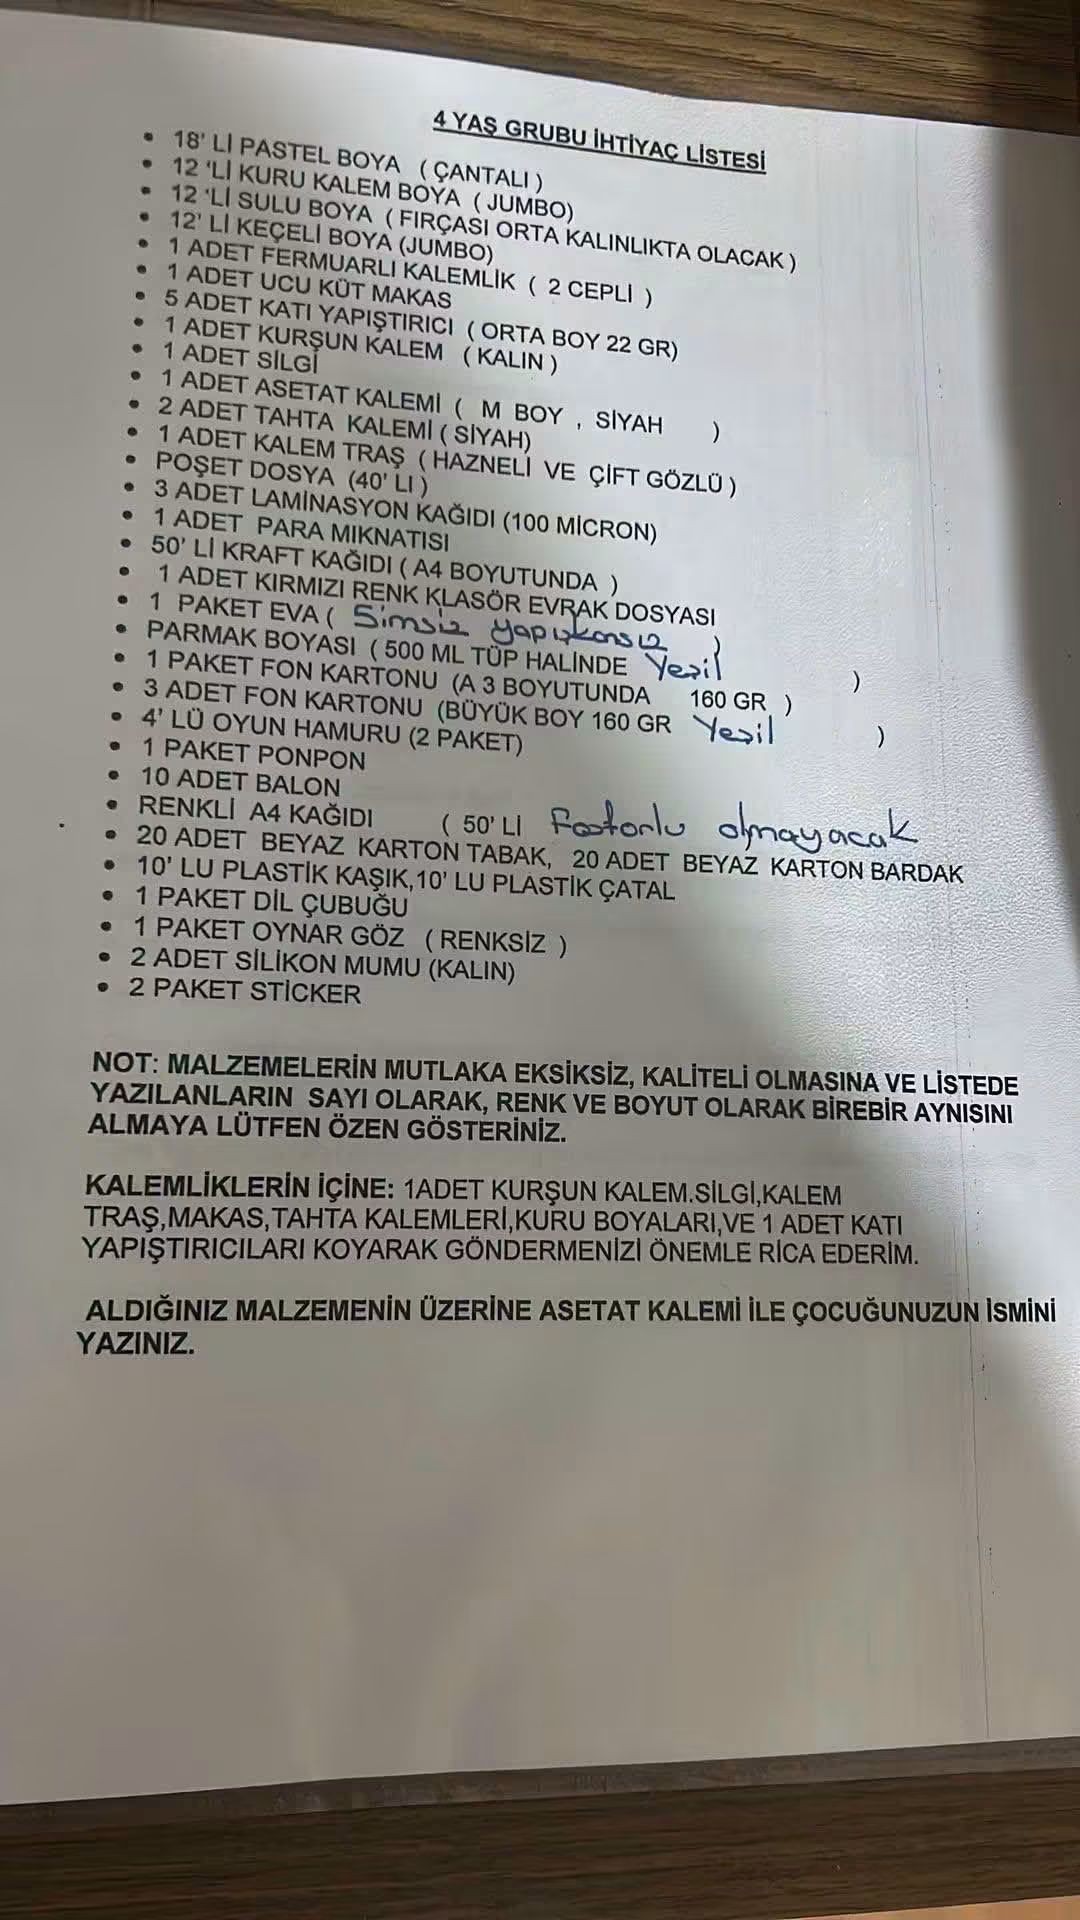 4 YAŞ GRUBU İHTİYAÇ LİSTESİ
• 18' Lİ PASTEL BOYA ( ÇANTALI )
• 12 'Lİ KURU KALEM BOYA ( JUMBO)
• 12 'Lİ SULU BOYA ( FIRÇASI ORTA KALINLIKTA OLACAK )
• 12' Lİ KEÇELİ BOYA (JUMBO)
• 1 ADET FERMUARLI KALEMLİK ( 2 CEPLİ )
• 1 ADET UCU KÜT MAKAS
• 5 ADET KATI YAPIŞTIRICI ( ORTA BOY 22 GR)
• 1 ADET KURŞUN KALEM ( KALIN )
• 1 ADET SİLGİ
• 1 ADET ASETAT KALEMİ ( M BOY , SİYAH )
• 2 ADET TAHTA KALEMİ ( SİYAH)
• 1 ADET KALEM TRAŞ ( HAZNELİ VE ÇİFT GÖZLÜ )
• POŞET DOSYA (40' LI )
• 3 ADET LAMİNASYON KAĞIDI (100 MİCRON)
• 1 ADET PARA MIKNATISI
• 50' Lİ KRAFT KAĞIDI ( A4 BOYUTUNDA )
• 1 ADET KIRMIZI RENK KLASÖR EVRAK DOSYASI
• 1 PAKET EVA ( Simsiz yapışkansız )
• PARMAK BOYASI ( 500 ML TÜP HALİNDE Yeşil )
• 1 PAKET FON KARTONU (A 3 BOYUTUNDA 160 GR )
• 3 ADET FON KARTONU (BÜYÜK BOY 160 GR Yeşil )
• 4' LÜ OYUN HAMURU (2 PAKET)
• 1 PAKET PONPON
• 10 ADET BALON
• RENKLİ A4 KAĞIDI ( 50' Lİ Fosforlu olmayacak
• 20 ADET BEYAZ KARTON TABAK, 20 ADET BEYAZ KARTON BARDAK
• 10' LU PLASTİK KAŞIK,10' LU PLASTİK ÇATAL
• 1 PAKET DİL ÇUBUĞU
• 1 PAKET OYNAR GÖZ ( RENKSİZ )
• 2 ADET SİLİKON MUMU (KALIN)
• 2 PAKET STİCKER
NOT: MALZEMELERİN MUTLAKA EKSİKSİZ, KALİTELİ OLMASINA VE LİSTEDE
YAZILANLARIN SAYI OLARAK, RENK VE BOYUT OLARAK BİREBİR AYNISINI
ALMAYA LÜTFEN ÖZEN GÖSTERİNİZ.
KALEMLİKLERİN İÇİNE: 1ADET KURŞUN KALEM.SİLGİ,KALEM
TRAŞ,MAKAS,TAHTA KALEMLERİ,KURU BOYALARI,VE 1 ADET KATI
YAPIŞTIRICILARI KOYARAK GÖNDERMENİZİ ÖNEMLE RİCA EDERİM.
ALDIĞINIZ MALZEMENİN ÜZERİNE ASETAT KALEMİ İLE ÇOCUĞUNUZUN İSMİNİ
YAZINIZ.